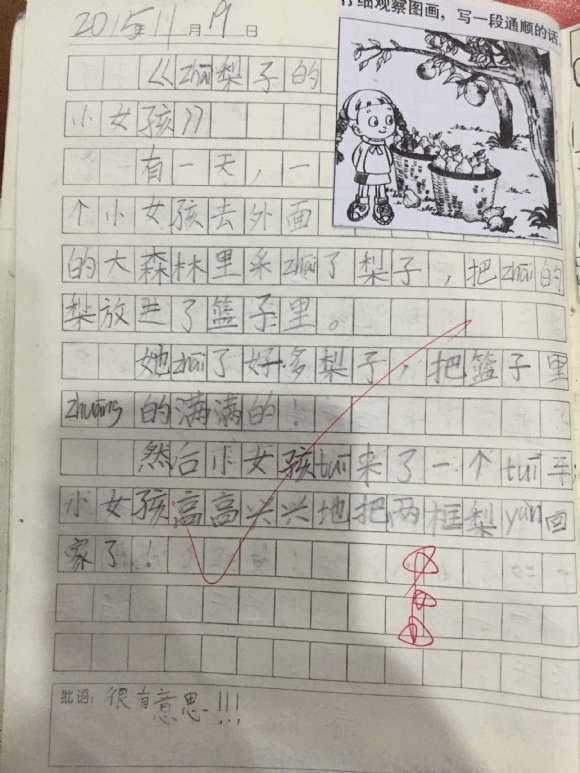 2015年11月19日
仔细观察图画，写一段通顺的话。
《zhāi梨子的
小女孩》
有一天，一
个小女孩去外面
的大森林里采zhāi了梨子，把zhāi的
梨放进了篮子里。
她zhāi了好多梨子，把篮子里
zhuāng的满满的！
然后小女孩tuī来了一个tuī车
小女孩高高兴兴地把两框梨yùn回
家了！
批语：很有意思！！！